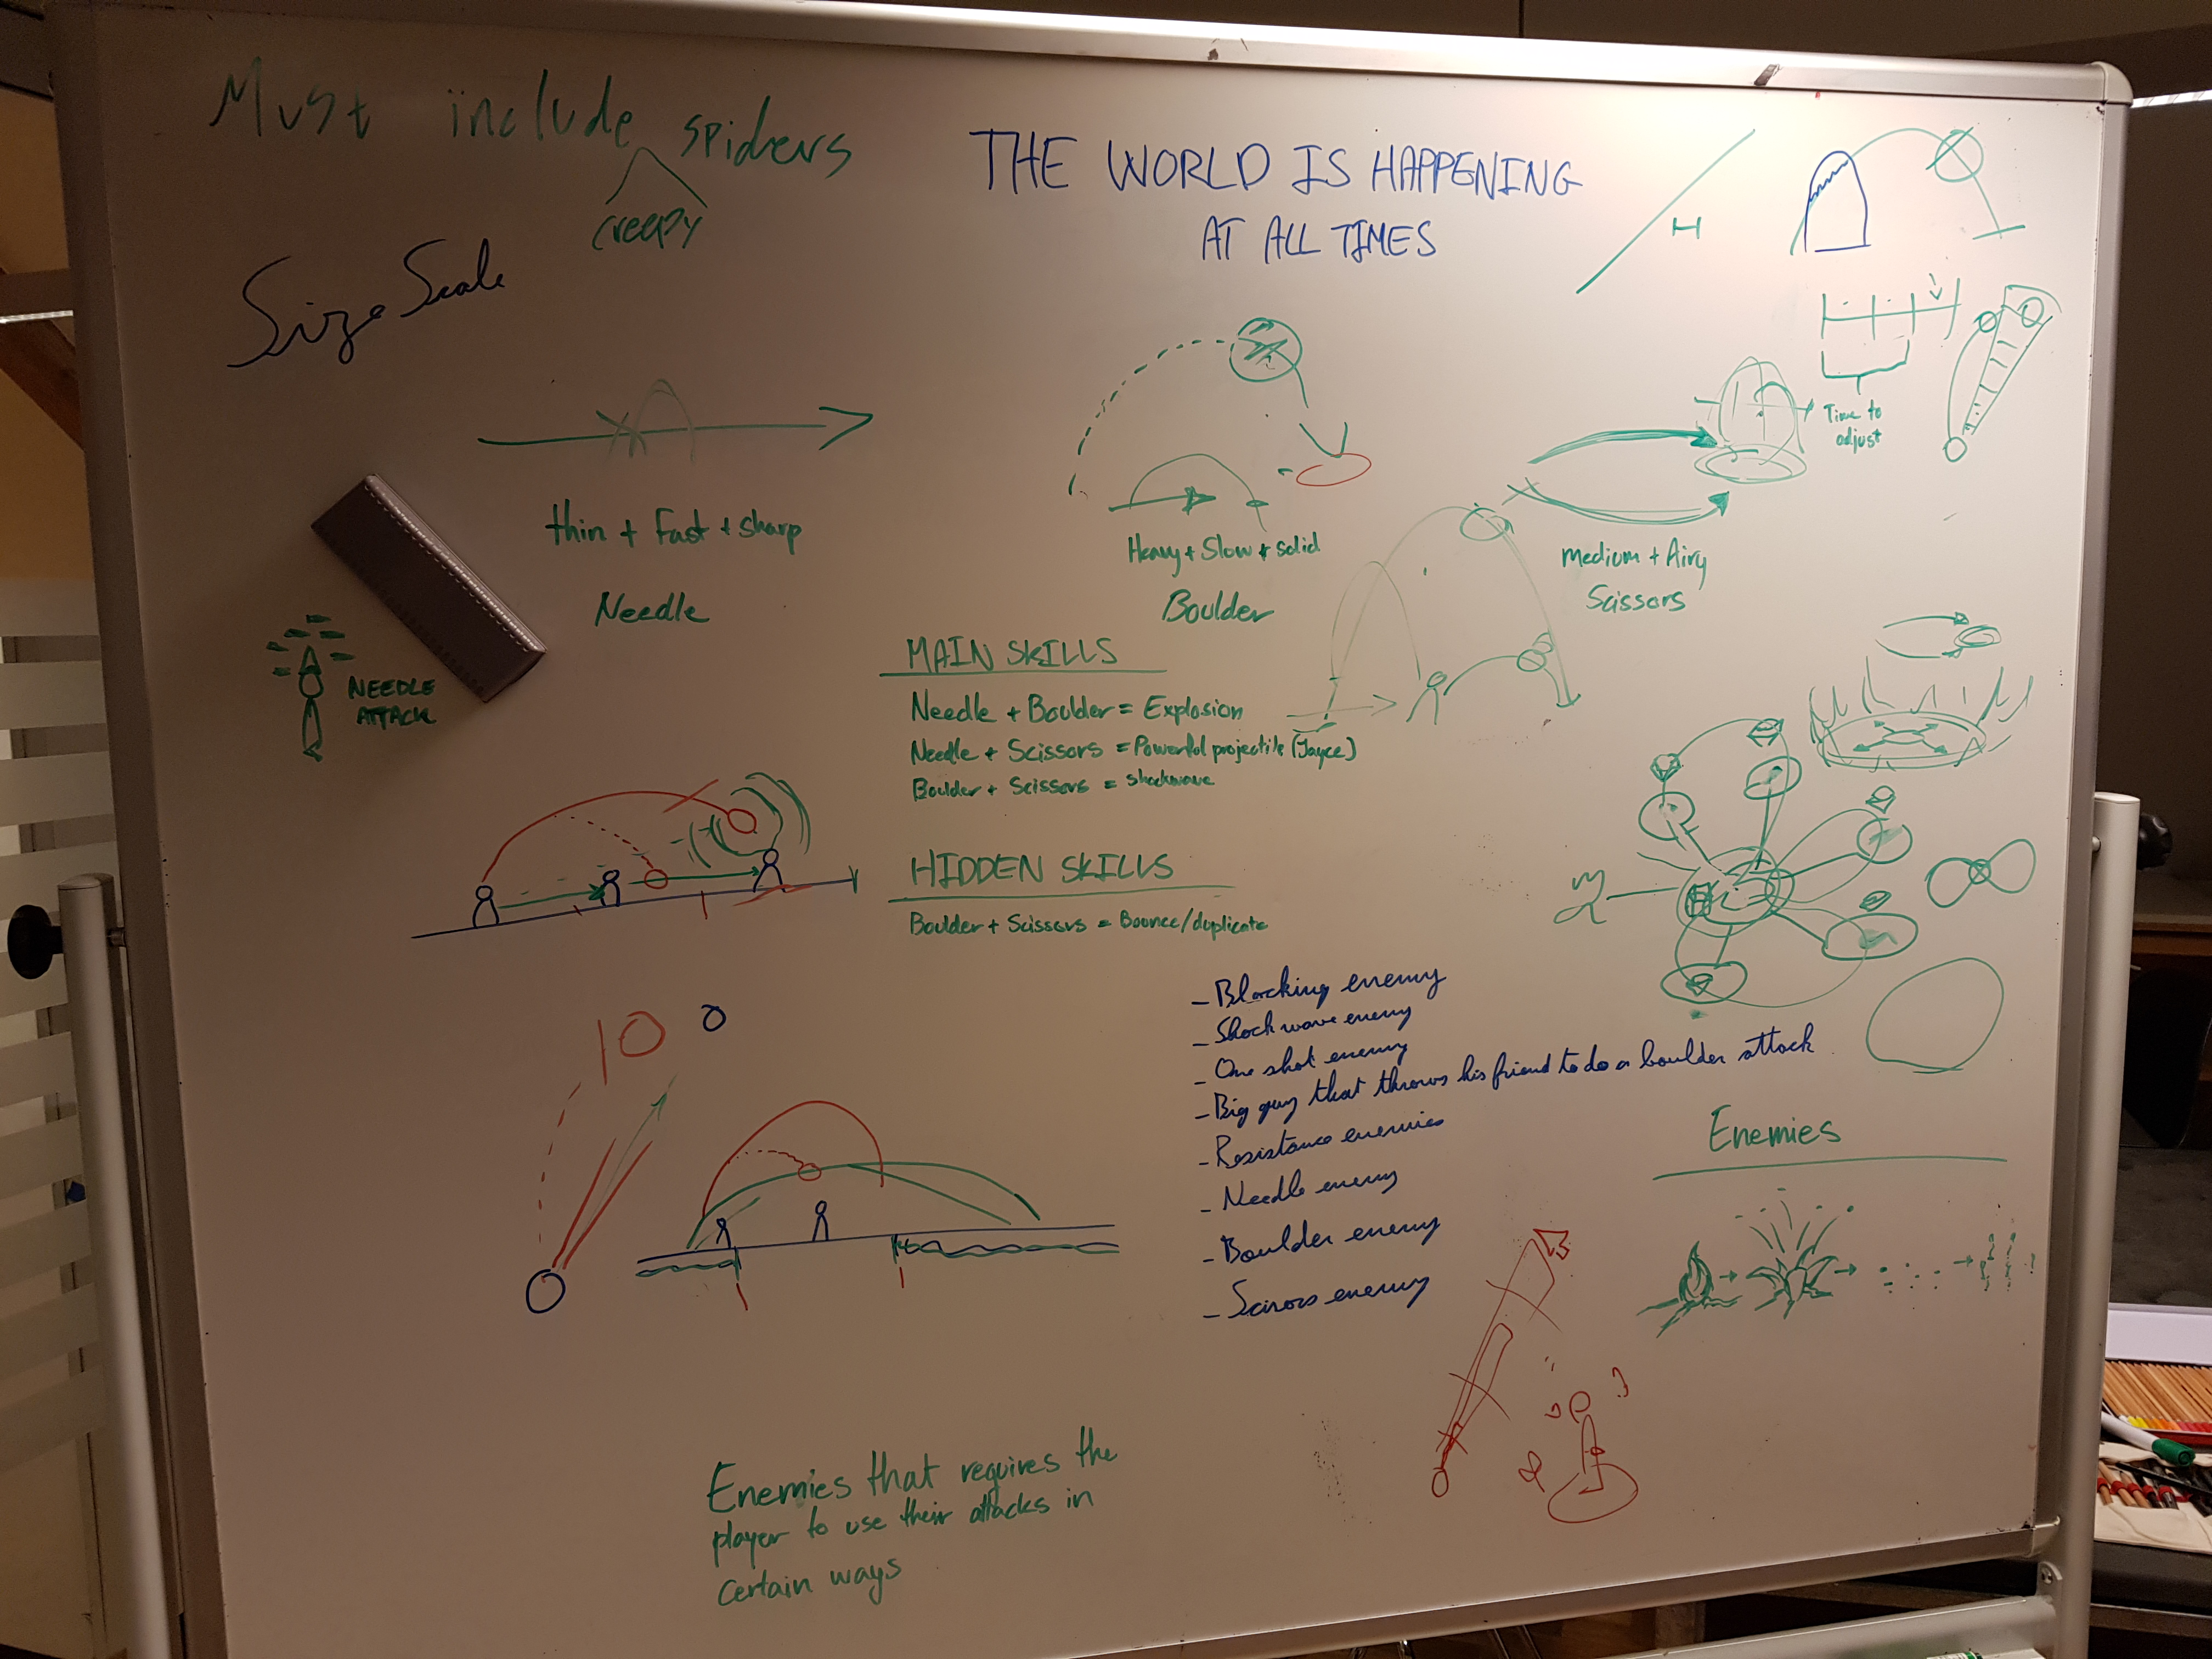 Must include spiders
creepy
THE WORLD IS HAPPENING
AT ALL TIMES
H
Size Scale
Time to
adjust
thin + Fast + sharp
Needle
Heavy + Slow + solid
Boulder
Medium + Airy
Scissors
NEEDLE
ATTACK
MAIN SKILLS
Needle + Boulder = Explosion
Needle + Scissors = Powerful projectile (Jayce)
Boulder + Scissors = shockwave
HIDDEN SKILLS
Boulder + Scissors = Bounce/duplicate
10
- Blocking enemy
- Shock wave enemy
- One shot enemy
- Big guy that throws his friend to do a boulder attack
- Resistance enemies
- Needle enemy
- Boulder enemy
- Scirors enemy
Enemies
Enemies that requires the
player to use their attacks in
certain ways